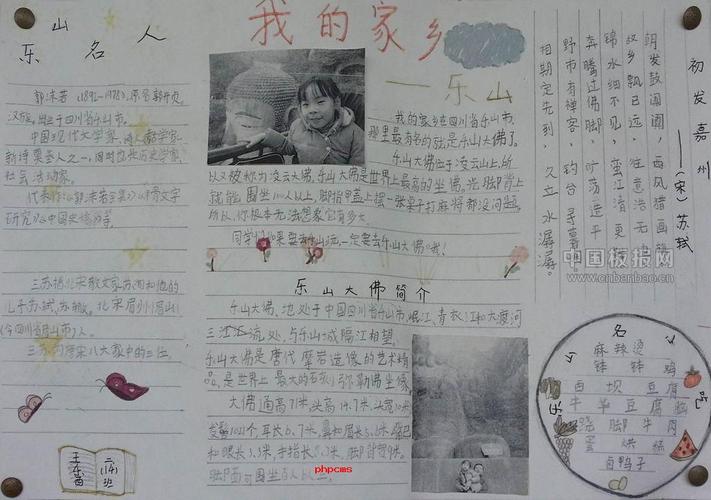 我的家乡
——乐山
乐山名人
郭沫若(1892-1978),原名郭开贞,
汉族,出生于四川省乐山市。
中国现代文学家、
新诗奠基人之一,同时也是历史学家、
社会活动家。
三苏指北宋散文家苏洵和他的
儿子苏轼、苏辙。北宋眉州(眉山)
(今四川省眉山市)人。
三苏为唐宋八大家中的三位。
王东雷
二(4)班
我的家乡在四川省乐山市,
那里最有名的就是乐山大佛了。
乐山大佛位于凌云山上,所
以又被称为凌云大佛。乐山大佛是世界上最高的坐佛,光脚背上
就能围坐100人以上,脚指甲盖上摆一张桌子打麻将都没问题,
所以,你根本无法想象它有多大。
同学们如果要去乐山玩,一定要去乐山大佛哦!
乐山大佛简介
乐山大佛,地处于中国四川省乐山市,岷江、青衣江和大渡河
三江汇流处,与乐山城隔江相望。
乐山大佛是唐代摩岩造像的艺术精
品,是世界上最大的石刻弥勒佛坐像。
大佛通高71米,头高14.7米,头宽10米
发髻1021个,耳长6.7米,鼻和眉长5.6米,嘴巴
和眼长3.3米,手指长8.3米,脚背宽9米,
脚面可围坐百人以上。
初发嘉州
——(宋)苏轼
朝发鼓阗阗,西风猎画旃。
故乡飘已远,往意浩无边。
锦水细不见,蛮江清更鲜。
奔腾过佛脚,旷荡造平川。
野市有禅客,钓台寻暮烟。
相期定先到,久立水潺潺。
名
乐
麻辣烫
钵钵鸡
西坝豆腐
牛华豆腐脑
跷脚牛肉
蛋烘糕
卤鸭子
中国板报网
www.cnbanbao.cn
phpcms